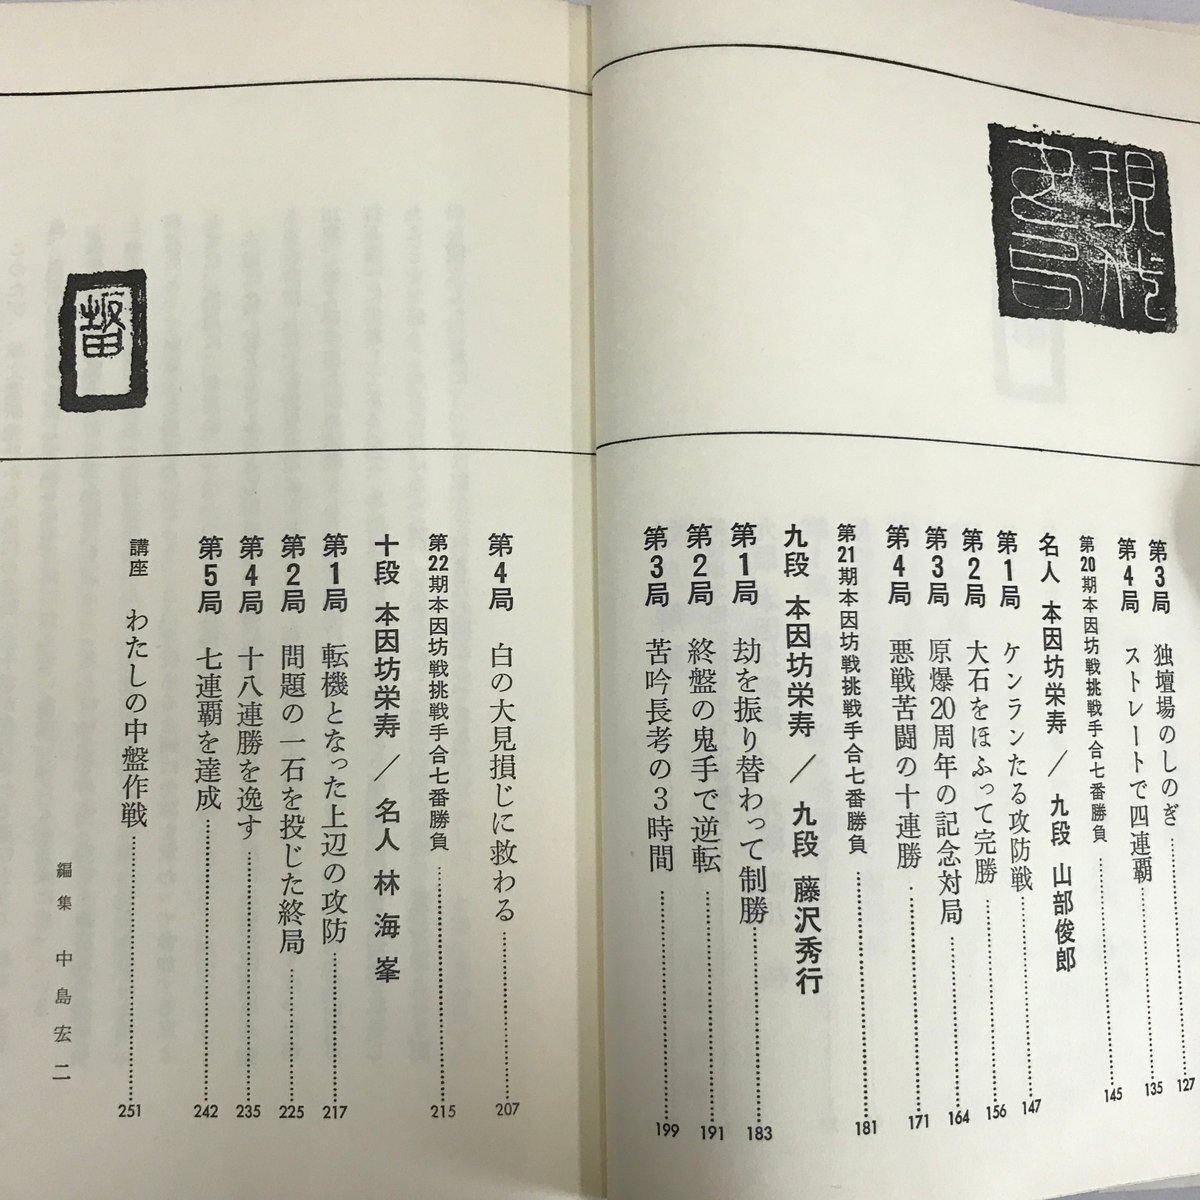 現代之名
第3局 独壇場のしのぎ 127
第4局 ストレートで四連覇 135
第20期本因坊戦挑戦手合七番勝負 145
名人 本因坊栄寿/九段 山部俊郎
第1局 ケンランたる攻防戦 147
第2局 大石をほふって完勝 156
第3局 原爆20周年の記念対局 164
第4局 悪戦苦闘の十連勝 171
第21期本因坊戦挑戦手合七番勝負 181
九段 本因坊栄寿/九段 藤沢秀行
第1局 劫を振り替わって制勝 183
第2局 終盤の鬼手で逆転 191
第3局 苦吟長考の3時間 199
第4局 白の大見損じに救わる 207
第22期本因坊戦挑戦手合七番勝負 215
十段 本因坊栄寿/名人 林海峯
第1局 転機となった上辺の攻防 217
第2局 問題の一石を投じた終局 225
第4局 十八連勝を逸す 235
第5局 七連覇を達成 242
講座 わたしの中盤作戦 251
編集 中島宏二